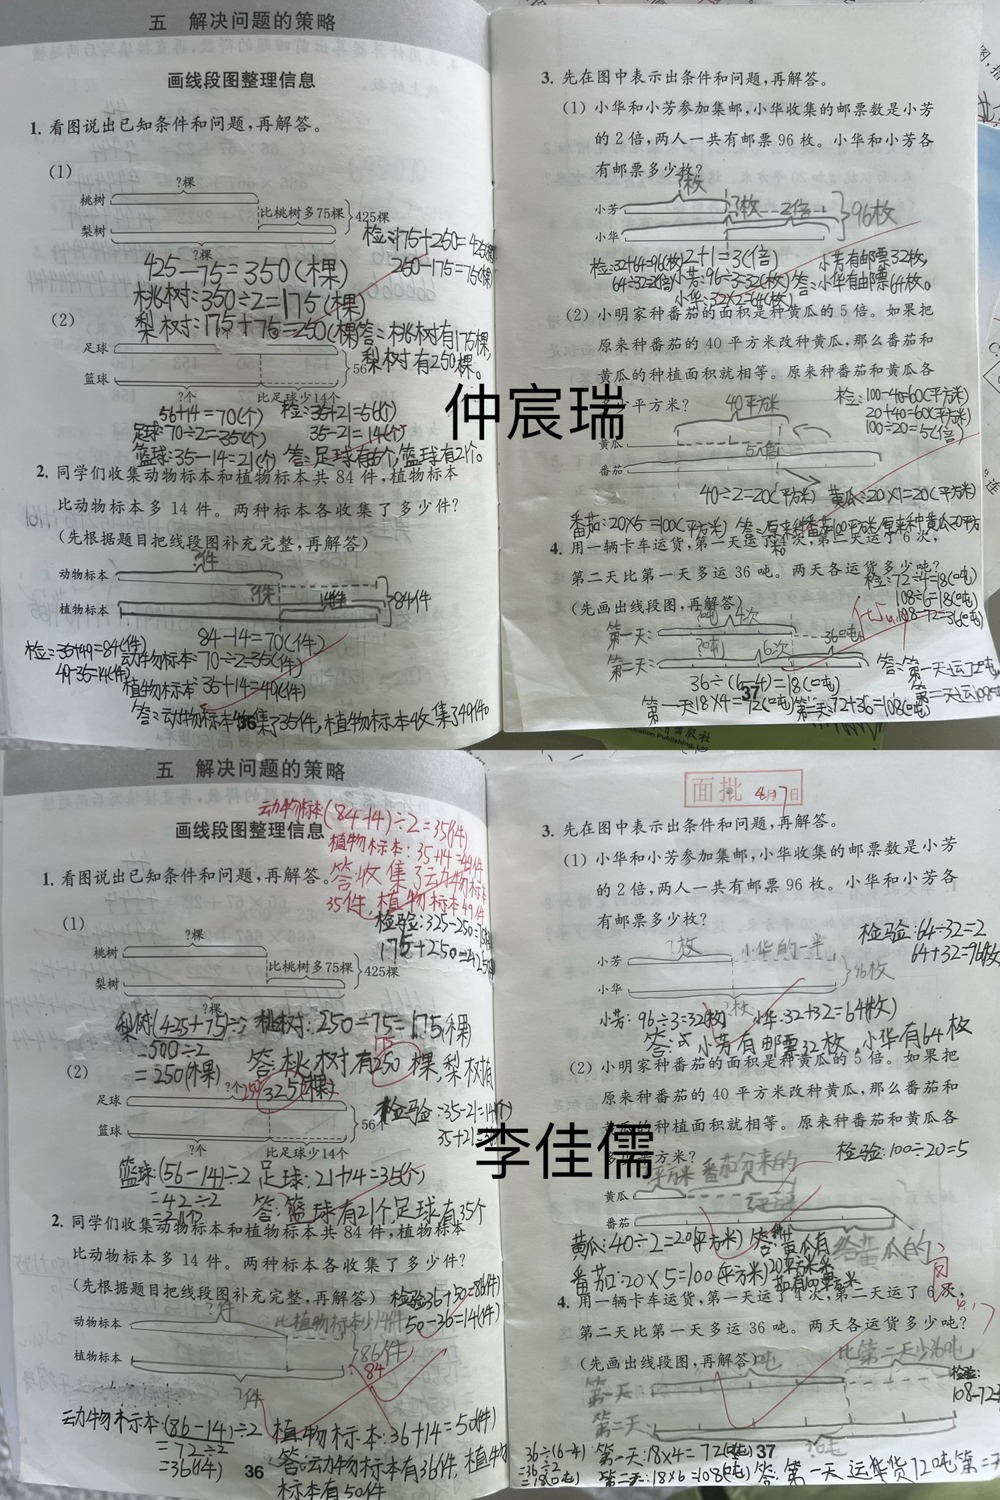 五 解决问题的策略
画线段图整理信息
1. 看图说出已知条件和问题,再解答。
(1)
?棵
桃树
比桃树多75棵
425棵
梨树
?棵
检:175+250=425(棵)
250-175=75(棵)
425-75=350(棵)
桃树:350÷2=175(棵)
梨树:175+76=250(棵)
答:桃树有175棵,
梨树有250棵。
(2)
足球
56
篮球
?个
比足球少14个
56+14=70(个)
足球:70÷2=35(个)
篮球:35-14=21(个)
检:35+21=56(个)
35-21=14(个)
2. 同学们收集动物标本和植物标本共 84 件,植物标本
比动物标本多 14 件。两种标本各收集了多少件?
(先根据题目把线段图补充完整,再解答)
?件
动物标本
?件
14件
84件
植物标本
84-14=70(件)
动物标本:70÷2=35(件)
植物标本:35+14=49(件)
检:35+49=84(件)
49-35=14(件)
答:动物标本收集了35件,植物标本收集了49件。
36
3. 先在图中表示出条件和问题,再解答。
(1) 小华和小芳参加集邮,小华收集的邮票数是小芳
的 2 倍,两人一共有邮票 96 枚。小华和小芳各
有邮票多少枚?
?枚
小芳
96枚
小华
2+1=3(倍)
小芳:96÷3=32(枚)
小华:32×2=64(枚)
检:32+64=96(枚)
64÷32=2(倍)
小芳有邮票32枚,
答:小华有邮票64枚。
(2) 小明家种番茄的面积是种黄瓜的 5 倍。如果把
原来种番茄的 40 平方米改种黄瓜,那么番茄和
黄瓜的种植面积就相等。原来种番茄和黄瓜各
多少平方米?
40平方米
检:100-40=60(平方米)
20+40=60(平方米)
100÷20=5(倍)
黄瓜
番茄
40÷2=20(平方米)
黄瓜:20×1=20(平方米)
番茄:20×5=100(平方米)
4. 用一辆卡车运货,第一天运了4次,第二天运了 6 次,
第二天比第一天多运 36 吨。两天各运货多少吨?
(先画出线段图,再解答)
检:72÷4=18(吨)
108÷6=18(吨)
108-72=36(吨)
第一天:
?吨
4次
36吨
第二天:
?吨
6次
36÷(6-4)=18(吨)
第一天18×4=72(吨)
第二天:72+36=108(吨)
37
仲宸瑞
五 解决问题的策略
画线段图整理信息
动物标本(84-14)÷2=35(件)
植物标本:35+14=49件
答收集了动物标本
35件,植物标本49件
1. 看图说出已知条件和问题,再解答。
(1)
?棵
桃树
比桃树多75棵
425棵
梨树
?棵
175+250=425
梨树(425+75)÷2
=500÷2
=250(棵)
桃树:250-75=175(棵)
(2)
?个
足球
56
篮球
?个
比足球少14个
检验:35-21=14(个)
篮球(56-14)÷2
=42÷2
=21个
足球:21+14=35(个)
答:篮球有21个,足球有35个
2. 同学们收集动物标本和植物标本共 84 件,植物标本
比动物标本多 14 件。两种标本各收集了多少件?
(先根据题目把线段图补充完整,再解答)
检验36+50=86(件)
50-36=14(件)
?件
动物标本
比植物标本少14件
86件
84
植物标本
?件
动物标本(86-14)÷2
=72÷2
=36(件)
植物标本:36+14=50(件)
答:动物标本有36件,植物
标本有50件
36
面批 4月7日
3. 先在图中表示出条件和问题,再解答。
(1) 小华和小芳参加集邮,小华收集的邮票数是小芳
的 2 倍,两人一共有邮票 96 枚。小华和小芳各
有邮票多少枚?
检验:64÷32=2
64+32=96(枚)
?枚
小华的一半
小芳
96枚
小华
?枚
小芳:96÷3=32(枚)
小华:32+32=64(枚)
答:小芳有邮票32枚,小华有64枚
(2) 小明家种番茄的面积是种黄瓜的 5 倍。如果把
原来种番茄的 40 平方米改种黄瓜,那么番茄和
黄瓜的种植面积就相等。原来种番茄和黄瓜各
多少平方米?
检验:100÷20=5
黄瓜
番茄
黄瓜:40÷2=20(平方米)
番茄:20×5=100(平方米)
4. 用一辆卡车运货,第一天运了4次,第二天运了 6 次,
第二天比第一天多运 36 吨。两天各运货多少吨?
(先画出线段图,再解答)
检验:
108-72
第一天:
第二天:
?吨
36÷(6-4)
=36÷2
=18(吨)
第一天:18×4=72(吨)
第二天:18×6=108(吨)
答:第一天运华货72吨第二天
37
李佳儒